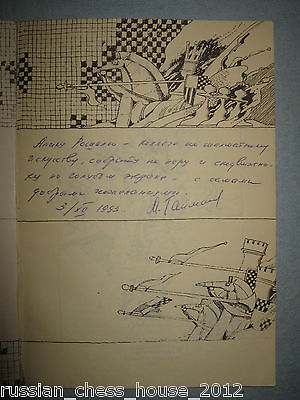 коллеге по шахматному
искусству, собрату по перу и сподвижни-
ку по голубым экранам - с самыми
добрыми пожеланиями.
3/VII 1993 М. Тайманов
russian_chess_house_2012